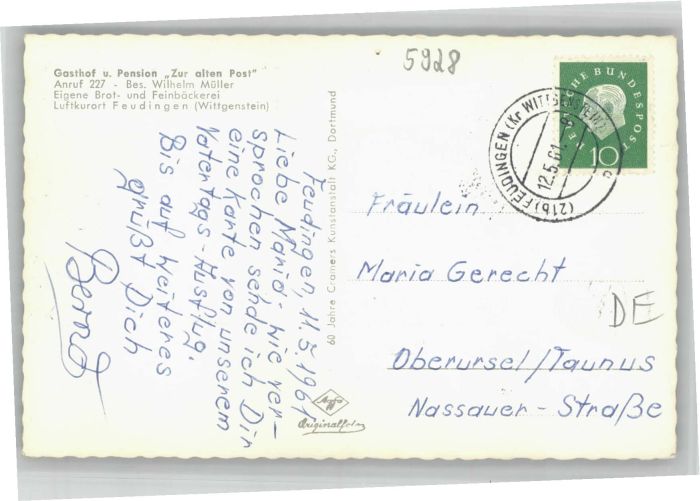 5928
Gasthof u. Pension „Zur alten Post"
Anruf 227 - Bes. Wilhelm Müller
Eigene Brot- und Feinbäckerei
Luftkurort Feudingen (Wittgenstein)
Feudingen, 11.5.1961
Liebe Maria, wie ver-
sprochen sende ich Dir
eine Karte von unserem
Vatertags-Ausflug.
Bis auf weiteres
grüßt Dich
Bernd
60 Jahre Cramers Kunstanstalt KG., Dortmund
Agfa
Originalfoto
DEUTSCHE BUNDESPOST
10
(21b) FEUDINGEN (Kr WITTGENSTEIN)
12.5.61
Fräulein
Maria Gerecht
DE
Oberursel/Taunus
Nassauer-Straße